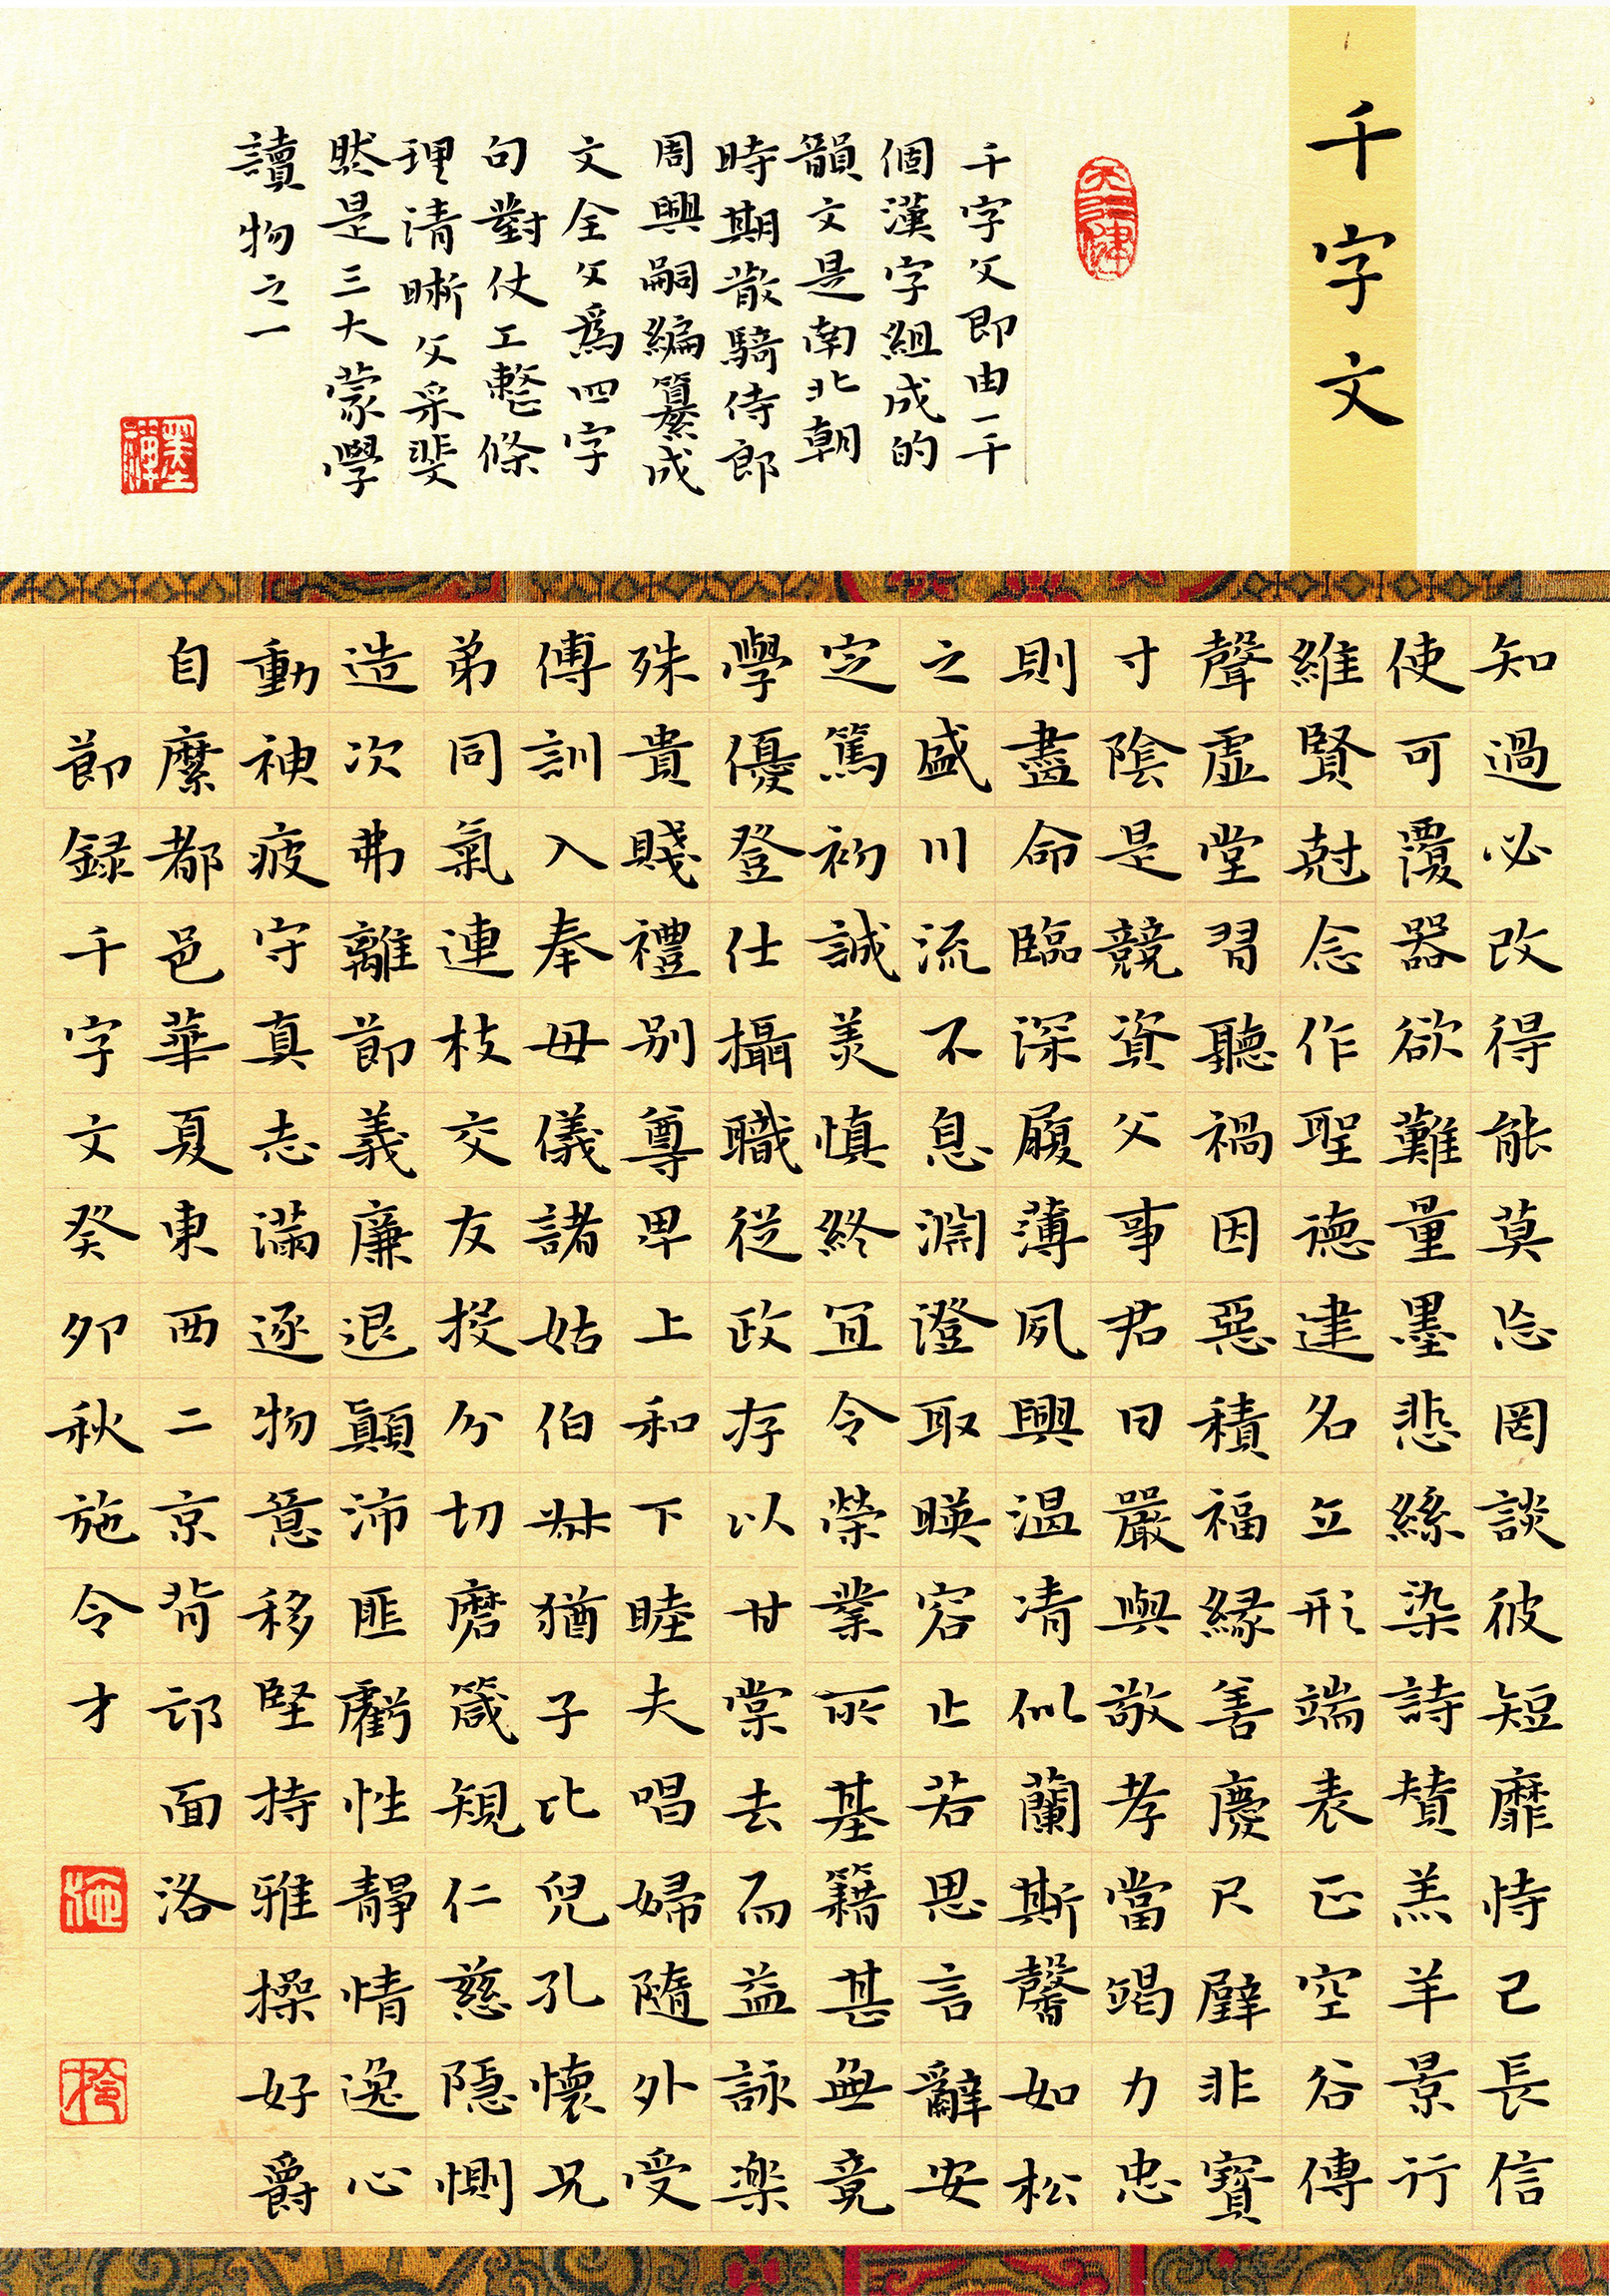 千字文
千字文即由一千
個漢字組成的
韻文是南北朝
時期散騎侍郎
周興嗣編纂成
文全文爲四字
句對仗工整條
理清晰文采斐
然是三大蒙學
讀物之一
墨禪
知過必改得能莫忘罔談彼短靡恃己長信
使可覆器欲難量墨悲絲染詩賛羔羊景行
維賢尅念作聖德建名立形端表正空谷傳
聲虛堂習聽禍因惡積福緣善慶尺璧非寶
寸陰是競資父事君曰嚴與敬孝當竭力忠
則盡命臨深履薄夙興溫清似蘭斯馨如松
之盛川流不息淵澄取暎容止若思言辭安
定篤初誠美慎終宜令榮業所基籍甚無竟
學優登仕攝職從政存以甘棠去而益詠楽
殊貴賤禮別尊卑上和下睦夫唱婦隨外受
傅訓入奉母儀諸姑伯叔猶子比兒孔懷兄
弟同氣連枝交友投分切磨箴規仁慈隱惻
造次弗離節義廉退顛沛匪虧性靜情逸心
動神疲守真志滿逐物意移堅持雅操好爵
自縻都邑華夏東西二京背邙面洛
節録千字文癸卯秋施令才
施